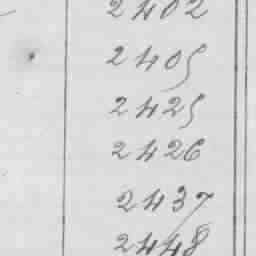 2402
2405
2425
2426
2437
2448